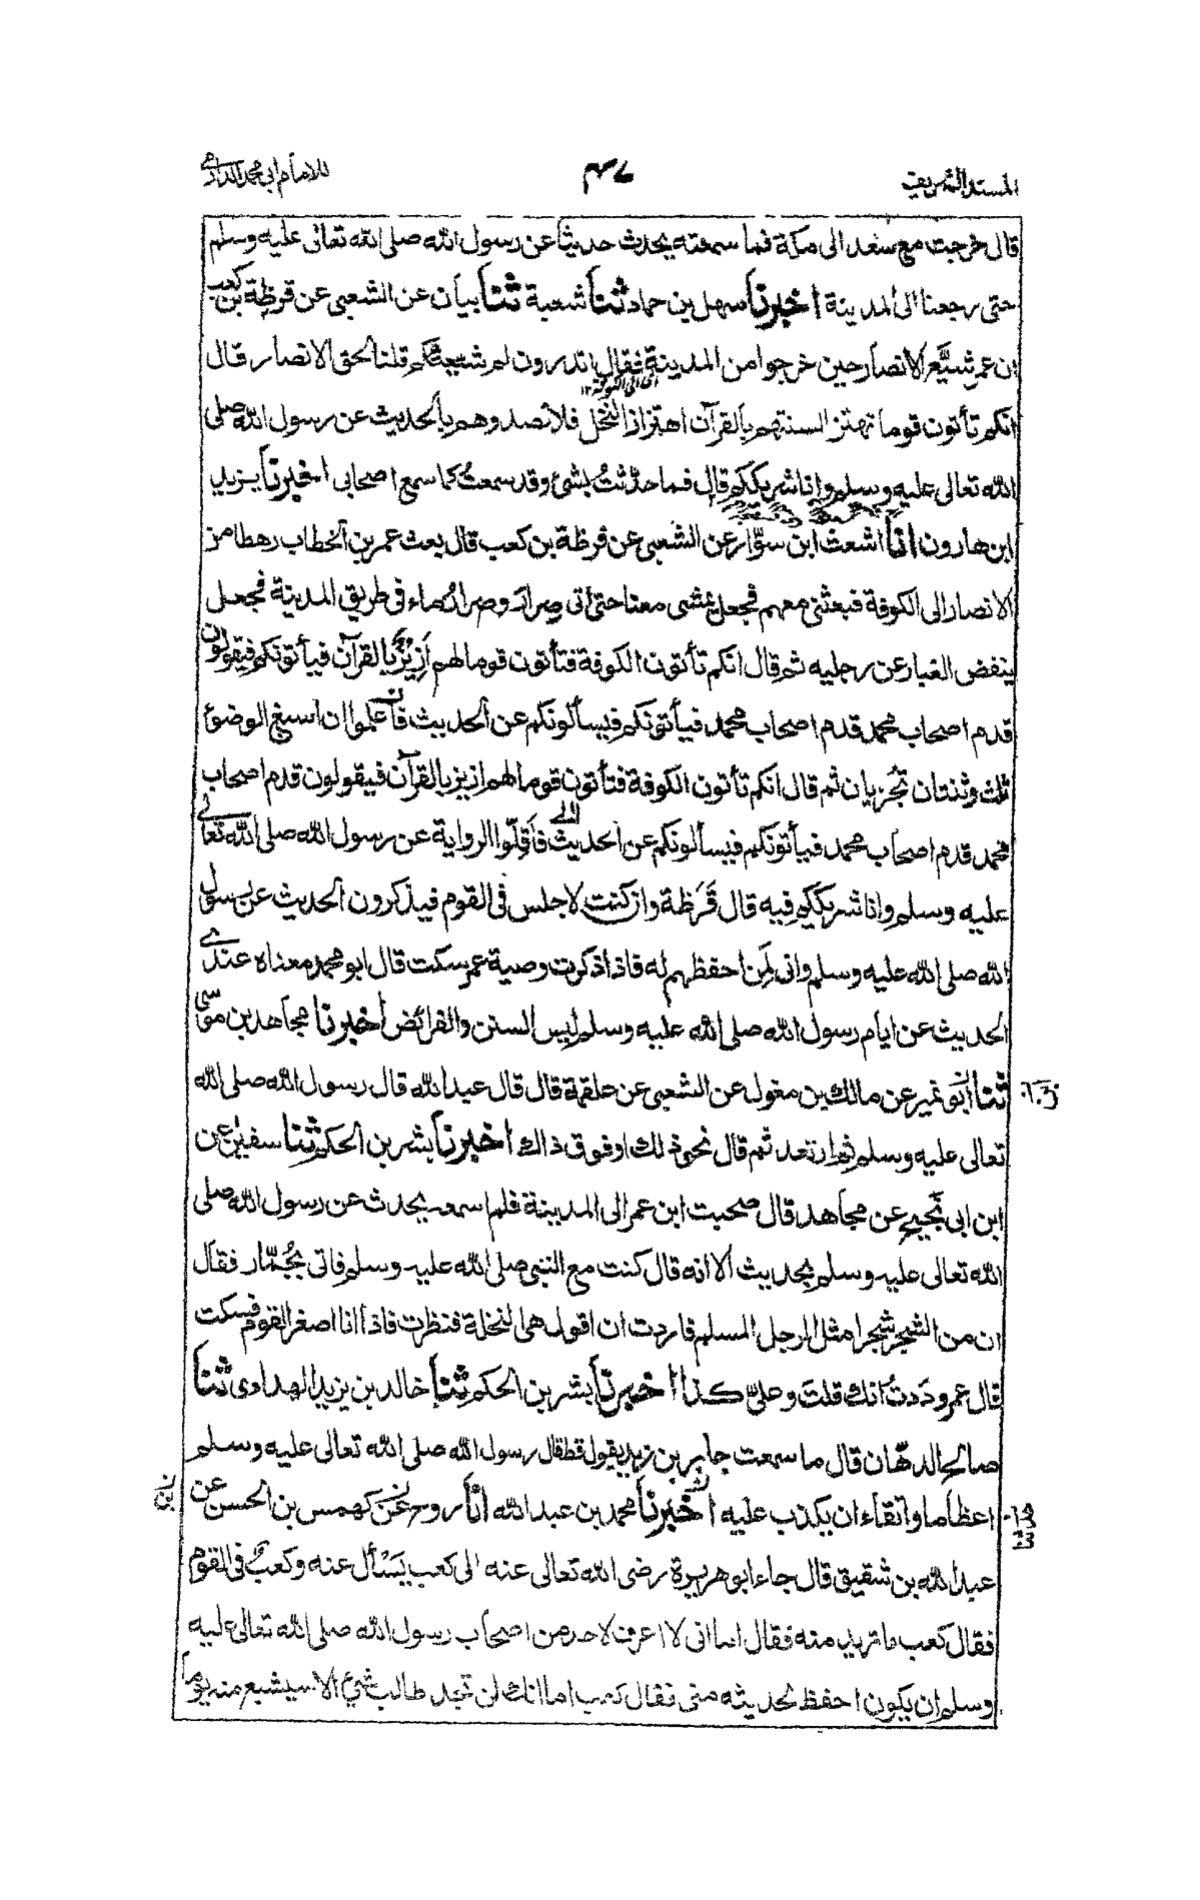 المسند الشريف
للامام ابى محمد الدارمى
قال خرجت مع سعد الى مكة فما سمعته يحدث حديثا عن رسول الله صلى الله تعالى عليه وسلم
حتى رجعنا الى المدينة اخبرنا سهل بن حماد ثنا شعبة ثنا بيان عن الشعبى عن قرظة بن كعب
ان عمر شيّع الانصار حين خرجوا من المدينة فقال اتدرون لم شيعتكم قلنا لحق الانصار قال
انكم تأتون قوما تهتز السنتهم بالقرآن اهتزاز النخل فلا تصدوهم بالحديث عن رسول الله صلى
الله تعالى عليه وسلم وانا شريككم قال فما حدّثتُ بشئ وقد سمعتُ كما سمع اصحابى اخبرنا يزيد
ابن هارون انا اشعث ابن سوّار عن الشعبى عن قرظة بن كعب قال بعث عمر بن الخطاب رهطا من
الانصار الى الكوفة فبعثنى معهم فجعل يمشى معنا حتى اتى صرار وصرارُ ماء فى طريق المدينة فجعل
ينفض الغبار عن رجليه ثم قال انكم تأتون الكوفة فتأتون قوما لهم اَزِيْزٌ بالقرآن فيأتونكم فيقولون
قدم اصحاب محمد قدم اصحاب محمد فيأتونكم فيسألونكم عن الحديث فاعلموا ان اسبغ الوضوء
ثلث وثنتان تُجزيان ثم قال انكم تأتون الكوفة فتأتون قوما لهم ازيز بالقرآن فيقولون قدم اصحاب
محمد قدم اصحاب محمد فيأتونكم فيسألونكم عن الحديث فاَقِلّوا الرواية عن رسول الله صلى الله تعالى
عليه وسلم وانا شريككم فيه قال قَرَظة وان كنت لاجلس فى القوم فيذكرون الحديث عن رسول
الله صلى الله عليه وسلم وانى لَمِن احفظهم له فاذا ذكرت وصية عمر سكت قال ابو محمد معناه عندى
الحديث عن ايام رسول الله صلى الله عليه وسلم ليس السنن والفرائض اخبرنا مجاهد بن موسى
ثنا ابن نمير عن مالك بن مغول عن الشعبى عن علقمة قال قال عبد الله قال رسول الله صلى الله
تعالى عليه وسلم ثم ارتعد ثم قال نحو ذلك او فوق ذاك اخبرنا بشر بن الحكم ثنا سفين عن
ابن ابى نَجيح عن مجاهد قال صحبت ابن عمر الى المدينة فلم اسمعه يحدث عن رسول الله صلى
الله تعالى عليه وسلم بحديث الا انه قال كنت مع النبى صلى الله عليه وسلم فاتى بجُمّار فقال
ان من الشجر شجرا مثل الرجل المسلم فاردت ان اقول هى النخلة فنظرت فاذا انا اصغر القوم فسكت
قال عمر ودَدتُ انك قلتَ وعلىّ كذا اخبرنا بشر بن الحكم ثنا خالد بن يزيد الهدادى ثنا
صالح الدهّان قال ما سمعت جابر بن زيد يقول قط قال رسول الله صلى الله تعالى عليه وسلم
اعظاما واتقاء ان يكذب عليه اخبرنا محمد بن عبد الله انا روح عن كهمس بن الحسن عن
عبد الله بن شقيق قال جاء ابو هريرة رضى الله تعالى عنه الى كعب يَسْأل عنه وكعبٌ فى القوم
فقال كعب ما تريد منه فقال اما انى لا اعرف لاحد من اصحاب رسول الله صلى الله تعالى عليه
وسلم ان يكون احفظ لحديثه منى فقال كعب اما انك لن تجد طالب شئ الا سيشبع منه يوما